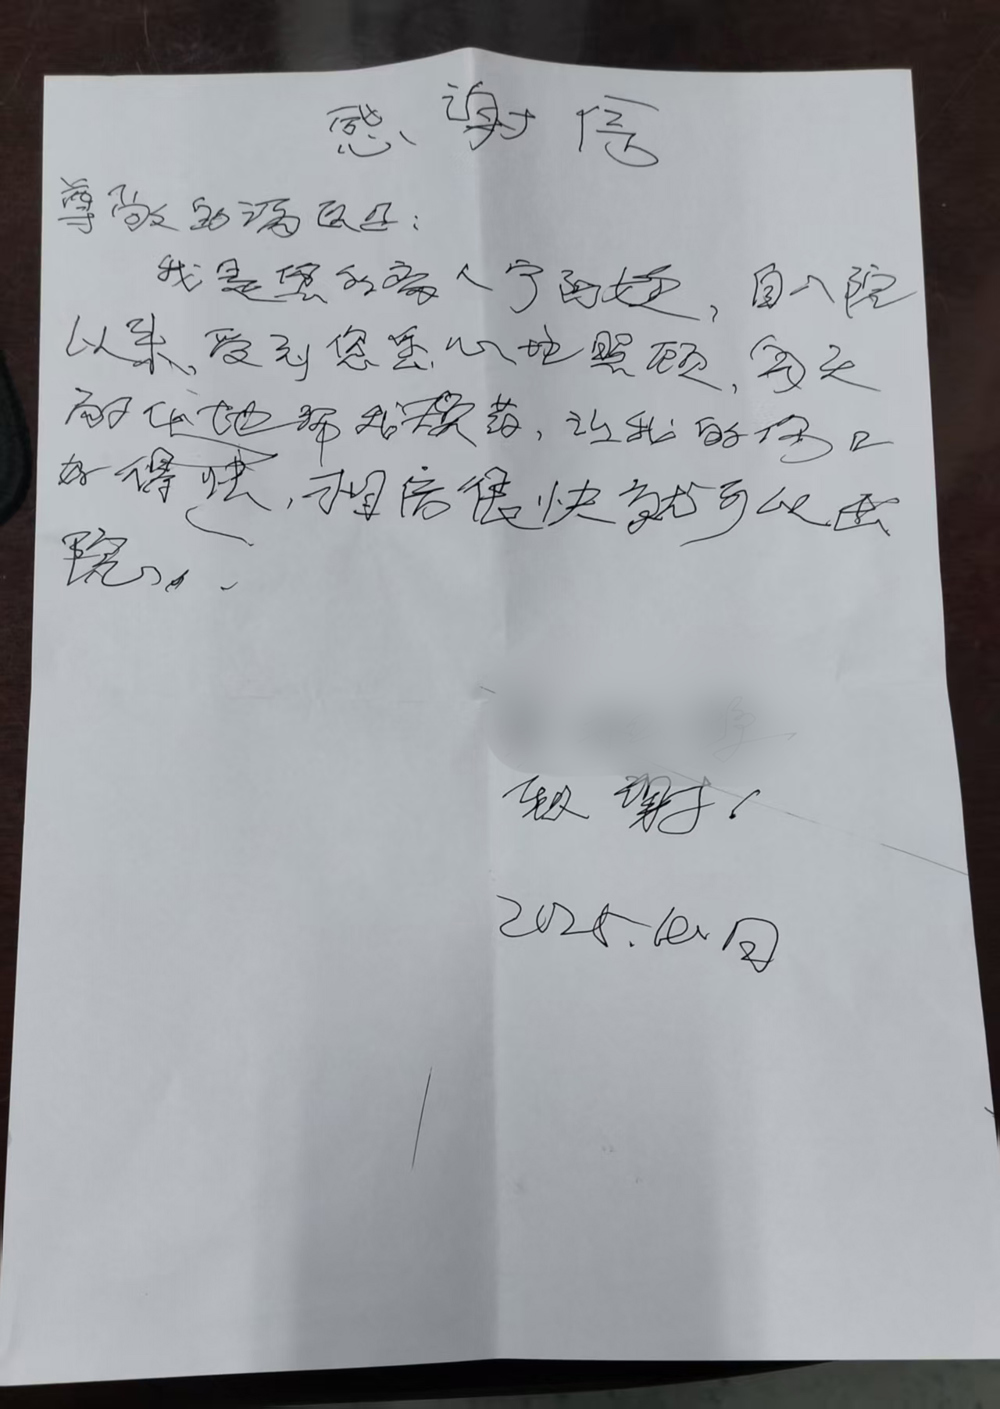 感谢信
尊敬的潘医生：
我是您的病人宁，自入院
以来，受到您悉心地照顾，每天
耐心地帮我换药，让我的伤口
好得快，相信很快就可以出
院。
致谢！
2025.